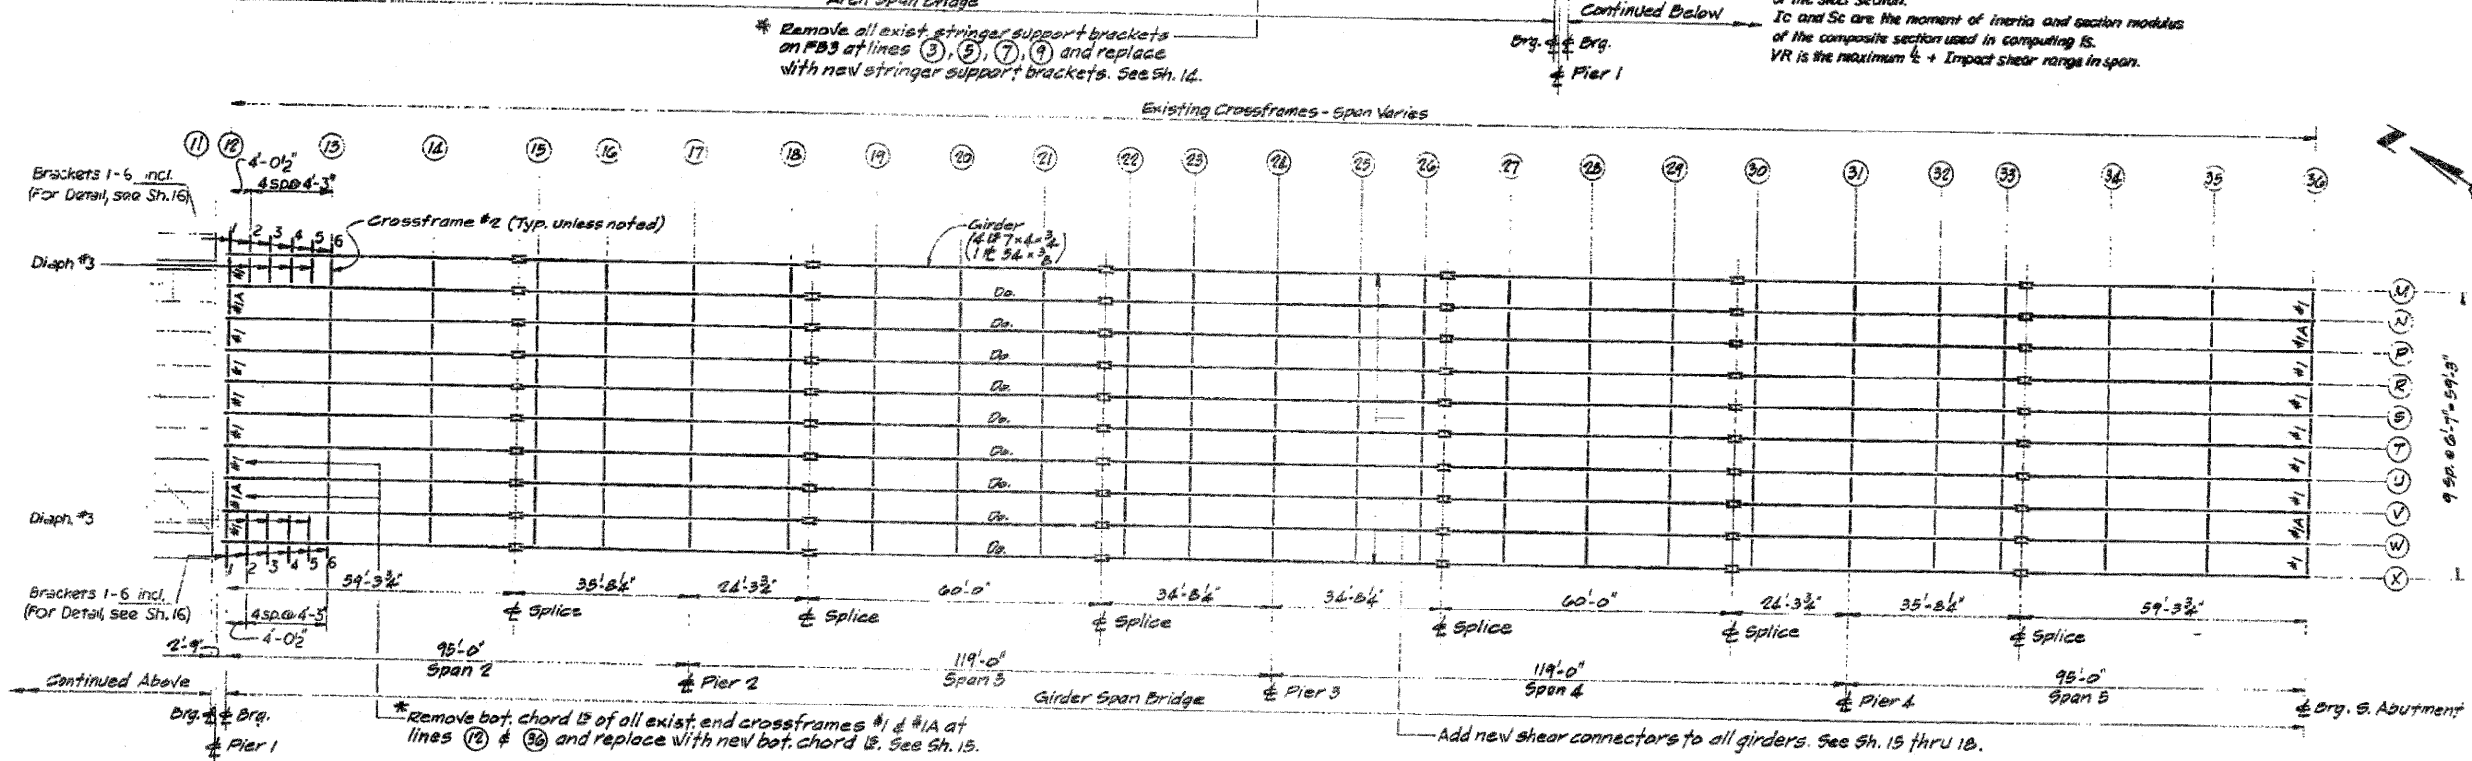 Arch Span Bridge
* Remove all exist. stringer support brackets
on FB3 at lines ③, ⑤, ⑦, ⑨ and replace
with new stringer support brackets. See Sh. 14.
Continued Below
Brg. ℄ ℄ Brg.
℄ Pier 1
of the steel section.
Ic and Sc are the moment of inertia and section modulus
of the composite section used in computing fs.
VR is the maximum ℄ + Impact shear range in span.
Existing Crossframes - Span Varies
11 12 13 14 15 16 17 18 19 20 21 22 23 24 25 26 27 28 29 30 31 32 33 34 35 36
4'-0½"
4 sp@ 4'-3"
Brackets 1-6 incl.
(For Detail, see Sh. 16)
Crossframe #2 (Typ. unless noted)
1 2 3 4 5 6
Diaph #3
Girder
(4 ∟s 7×4×¾)
(1 ℄ 54×⅜)
Do.
Do.
Do.
Do.
Do.
Do.
Do.
Do.
Do.
#1 #1A #1 #1 #1 #1 #1 #1A #1
#1 #1A #1 #1 #1 #1 #1 #1A #1
R
S
T
U
V
W
X
9 sp. @ 6'-7" = 59'-3"
Diaph. #3
1 2 3 4 5 6
Brackets 1-6 incl.
(For Detail, see Sh. 16)
4 sp.@ 4'-3"
4'-0½"
2'-9"
59'-3¾" 35'-8¼" 24'-3¾" 60'-0" 34'-8¼" 34'-8¼" 60'-0" 24'-3¾" 35'-8¼" 59'-3¾"
℄ Splice ℄ Splice ℄ Splice ℄ Splice ℄ Splice ℄ Splice
95'-0" 119'-0" 119'-0" 95'-0"
Span 2 ℄ Pier 2 Span 3 ℄ Pier 3 Span 4 ℄ Pier 4 Span 5
Continued Above
Girder Span Bridge
Brg. ℄ ℄ Brg.
℄ Pier 1
℄ Brg. S. Abutment
* Remove bot. chord ∟s of all exist. end crossframes #1 & #1A at
lines ⑫ & ㊱ and replace with new bot. chord ∟s. See Sh. 15.
Add new shear connectors to all girders. See Sh. 15 thru 18.